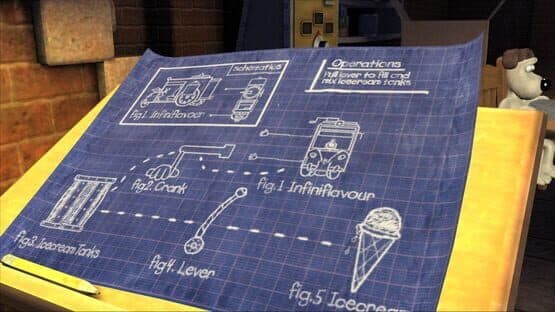 Schematics
fig.1. Infiniflavour
Operations
Pull lever to fill and
mix icecream tanks
fig2. Crank
fig.1 Infiniflavour
fig3. Icecream Tanks
fig4. Lever
fig.5 Icecream